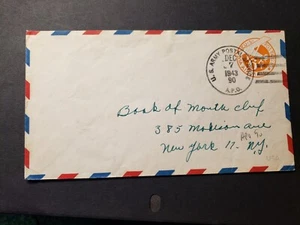 U.S. ARMY POSTAL SERVICE
DEC
7
1943
90
A.P.O.
Book of Month club
385 Madison ave
New York 17. N.Y.